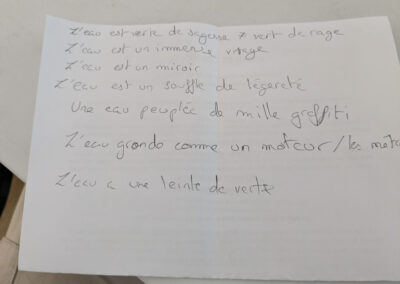 L'eau est verte de sagesse ≠ vert de rage
L'eau est un immense visage
L'eau est un miroir
L'eau est un souffle de légereté
Une eau peuplée de mille graffiti
L'eau gronde comme un moteur / les
L'eau a une teinte de vert